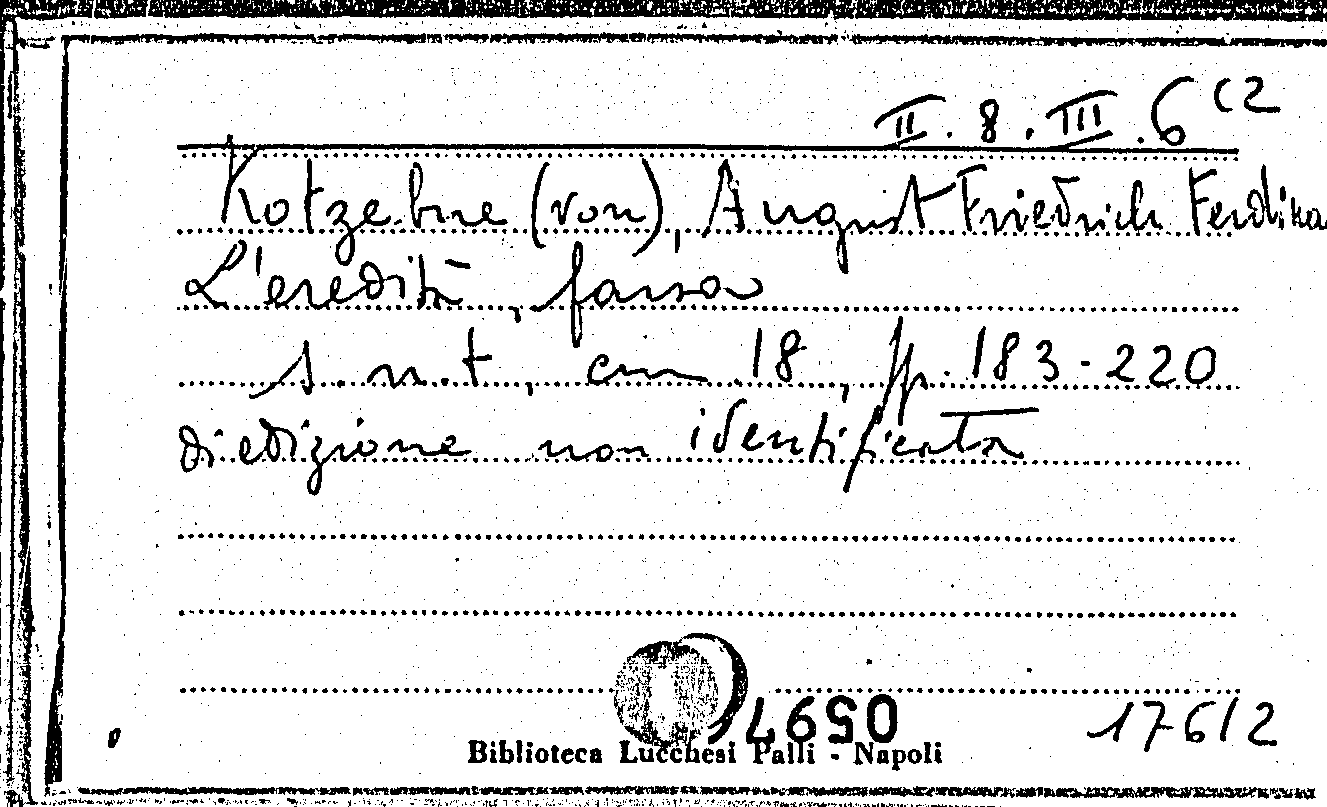 II. 8. III. 6 (2
Kotzebue (von), August Friedrich Ferdina
L'eredità, farsa
s.n.t, cm 18, pp. 183-220
di edizione non identificata
17612
Biblioteca Lucchesi Palli - Napoli